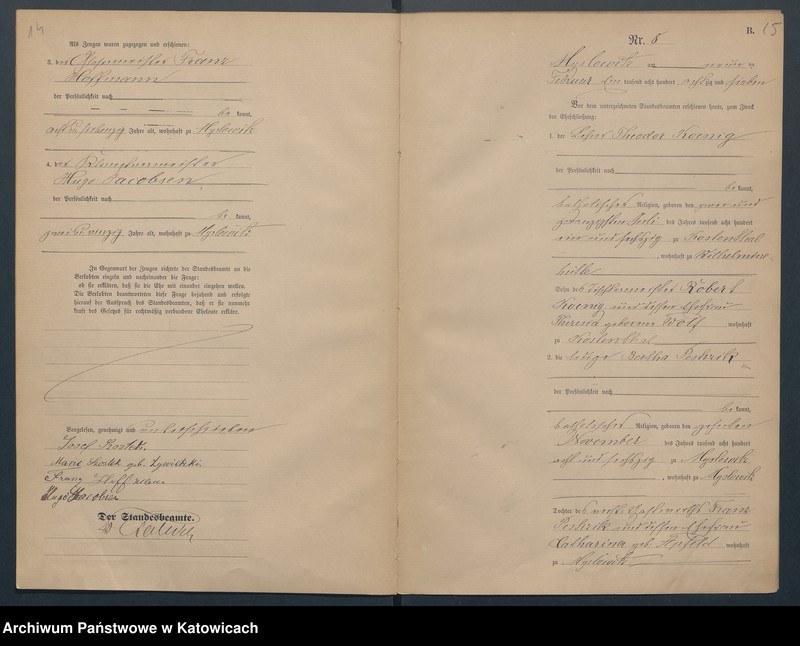 14
Als Zeugen waren zugezogen und erschienen:
3. der Franz
Hoffmann
der Persönlichkeit nach
be kannt,
Jahre alt, wohnhaft zu Myslowitz
4. der
Hugo Jacobsen
der Persönlichkeit nach
be kannt,
Jahre alt, wohnhaft zu Myslowitz
In Gegenwart der Zeugen richtete der Standesbeamte an die
Verlobten einzeln und nacheinander die Frage:
ob sie erklären, daß sie die Ehe mit einander eingehen wollen.
Die Verlobten beantworteten diese Frage bejahend und erfolgte
hierauf der Ausspruch des Standesbeamten, daß er sie nunmehr
kraft des Gesetzes für rechtmäßig verbundene Eheleute erkläre.
Vorgelesen, genehmigt und unterschrieben
Josef
Marie geb.
Franz Hoffmann
Hugo Jacobsen
Der Standesbeamte.
B. 15
Nr. 8
Myslowitz am neun ten
Februar ein tausend acht hundert achtzig und sieben
Vor dem unterzeichneten Standesbeamten erschienen heute, zum Zweck
der Eheschließung:
1. der Lehrer Theodor Koenig
der Persönlichkeit nach
be kannt,
katholischer Religion, geboren den zwei und
zwanzigsten Juli des Jahres tausend acht hundert
vier und sechzig zu Kostenthal
, wohnhaft zu Wilhelmine-
hütte
Sohn des Tischlermeister Robert
Koenig und dessen Ehefrau
Theresia geborene Wolf wohnhaft
zu Kostenthal
2. die ledige Bertha
der Persönlichkeit nach
be kannt,
katholischer Religion, geboren den
November des Jahres tausend acht hundert
acht und sechzig zu Myslowitz
, wohnhaft zu Myslowitz
Tochter des Franz
und dessen Ehefrau
Catharina geb. wohnhaft
zu Myslowitz
Archiwum Państwowe w Katowicach